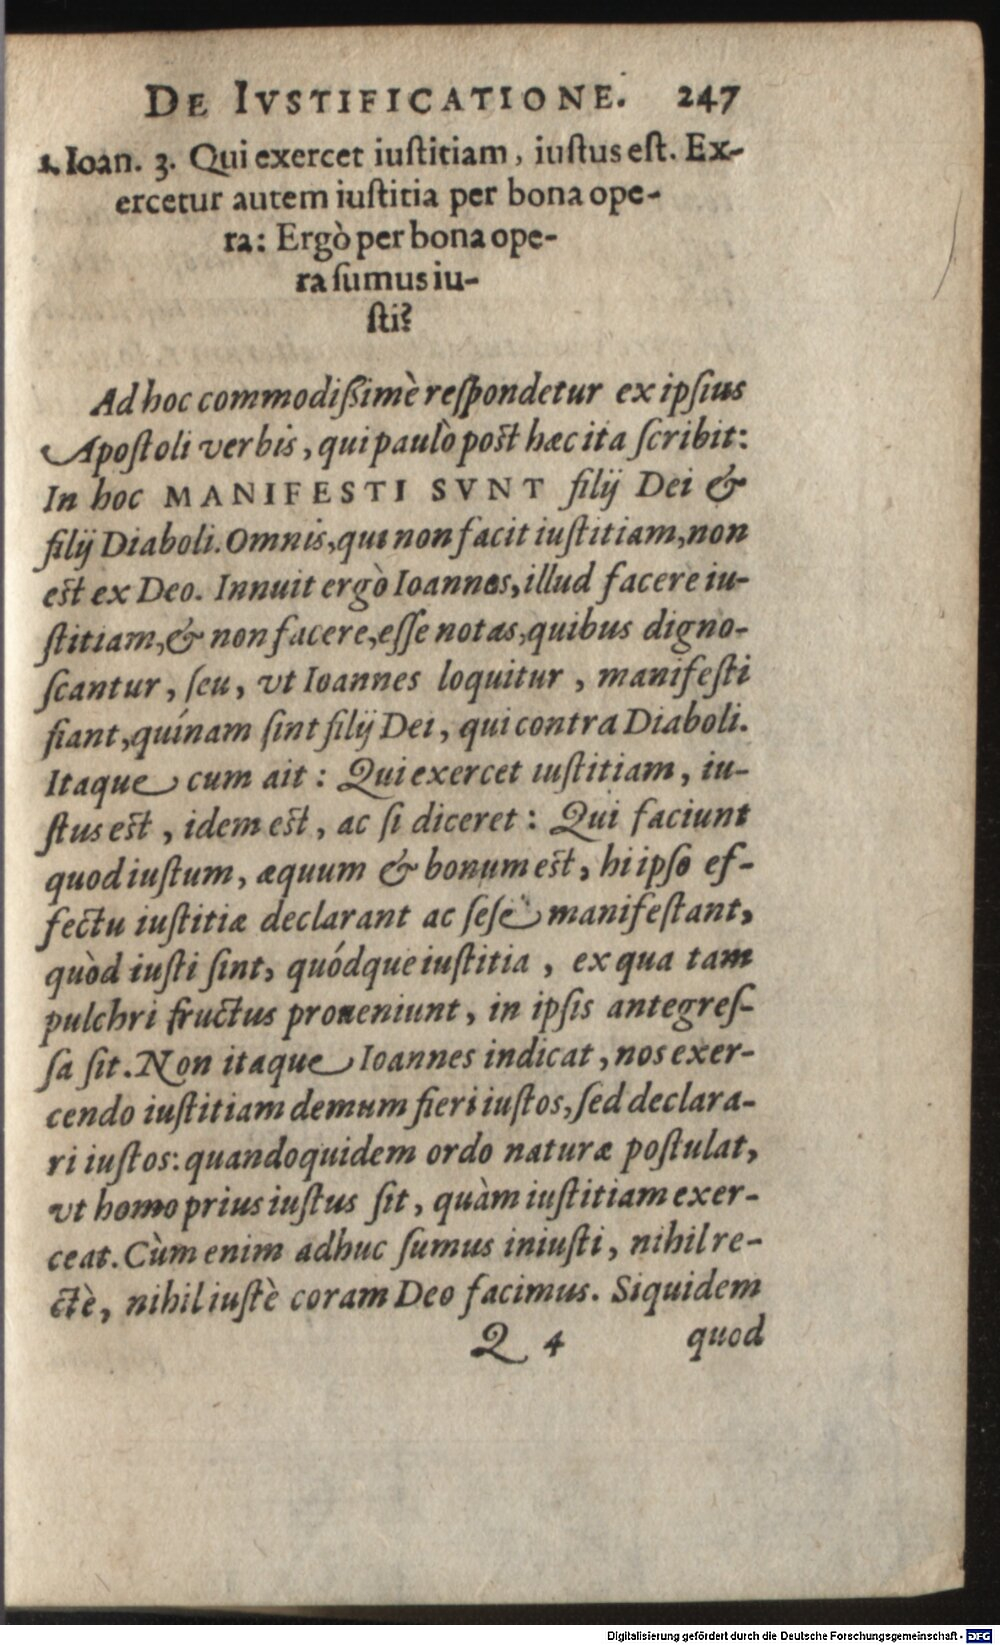 DE IVSTIFICATIONE. 247
1. Ioan. 3. Qui exercet iustitiam, iustus est. Ex-
ercetur autem iustitia per bona ope-
ra: Ergò per bona ope-
ra sumus iu-
sti?
Ad hoc commodißimè respondetur ex ipsius
Apostoli verbis, qui paulò post hæc ita scribit:
In hoc MANIFESTI SVNT filij Dei &
filij Diaboli. Omnis, qui non facit iustitiam, non
est ex Deo. Innuit ergò Ioannes, illud facere iu-
stitiam, & non facere, esse notas, quibus digno-
scantur, seu, vt Ioannes loquitur, manifesti
fiant, quínam sint filij Dei, qui contra Diaboli.
Itaque cum ait: Qui exercet iustitiam, iu-
stus est, idem est, ac si diceret: Qui faciunt
quod iustum, æquum & bonum est, hi ipso ef-
fectu iustitiæ declarant ac sese manifestant,
quòd iusti sint, quódque iustitia, ex qua tam
pulchri fructus proueniunt, in ipsis antegres-
sa sit. Non itaque Ioannes indicat, nos exer-
cendo iustitiam demum fieri iustos, sed declara-
ri iustos: quandoquidem ordo naturæ postulat,
vt homo prius iustus sit, quàm iustitiam exer-
ceat. Cùm enim adhuc sumus iniusti, nihil re-
ctè, nihil iustè coram Deo facimus. Siquidem
Q 4 quod
Digitalisierung gefördert durch die Deutsche Forschungsgemeinschaft - DFG